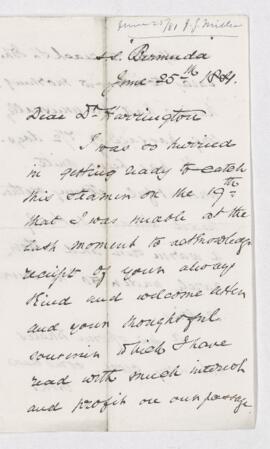 June 25/81 J. J. Miller
S.S. Bermuda
June 25th 1881.
Dear Dr Harrington
I was so hurried
in getting ready to catch
this steamer on the 19th
that I was unable at the
last moment to acknowledge
receipt of your always
kind and welcome letter
and your thoughtful
souvenir which I have
read with much interest
and profit on our passage